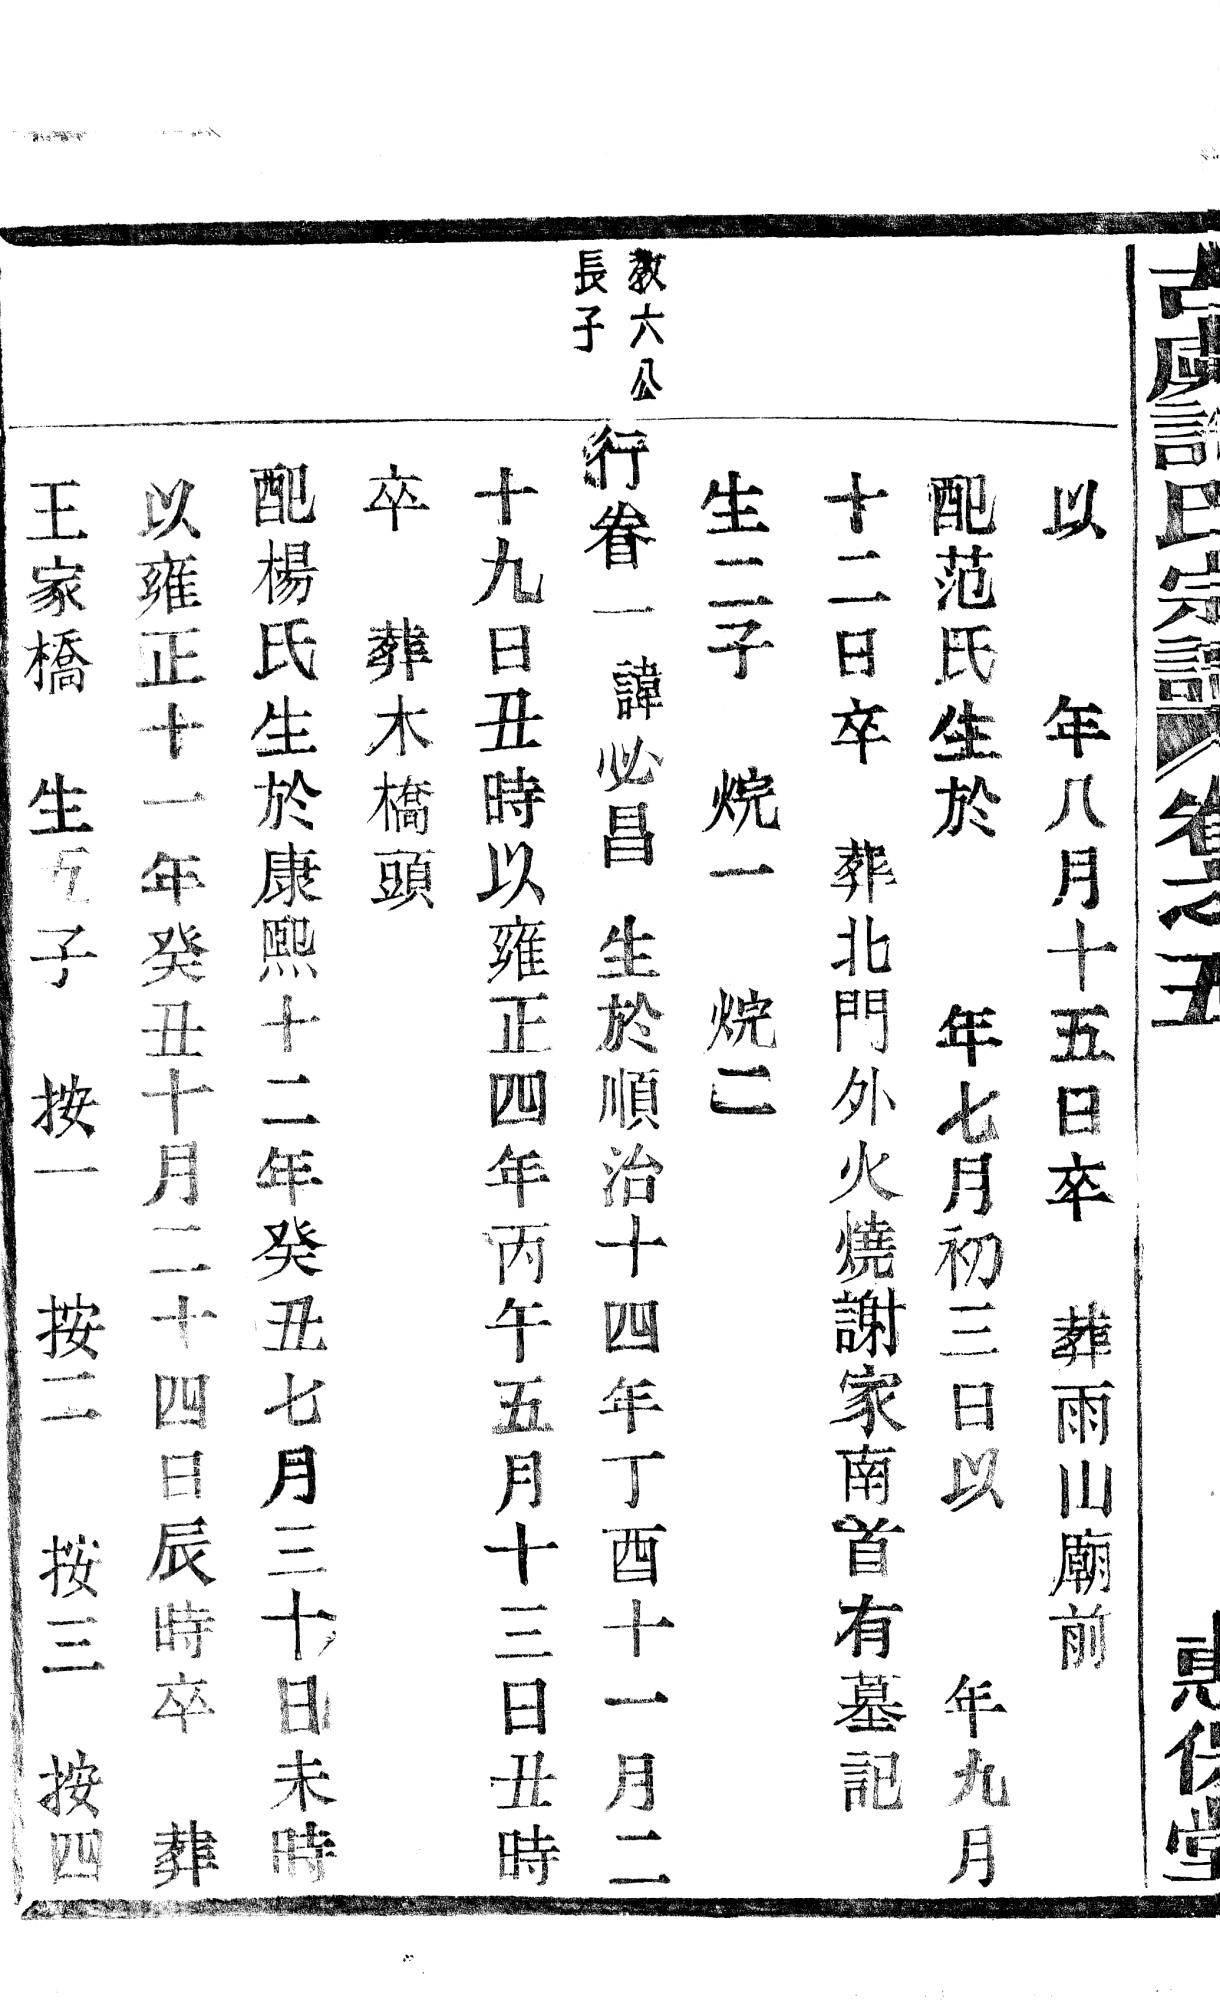 古虞 氏宗譜 卷之五 惠保堂
以 年八月十五日卒 葬雨山廟前
配范氏生於 年七月初三日以 年九月
十二日卒 葬北門外火燒謝家南首有墓記
生二子 烷一 烷二
教六公
長子
行眷一 諱必昌 生於順治十四年丁酉十一月二
十九日丑時以雍正四年丙午五月十三日丑時
卒 葬木橋頭
配楊氏生於康熙十二年癸丑七月三十日未時
以雍正十一年癸丑十月二十四日辰時卒 葬
王家橋 生五子 按一 按二 按三 按四